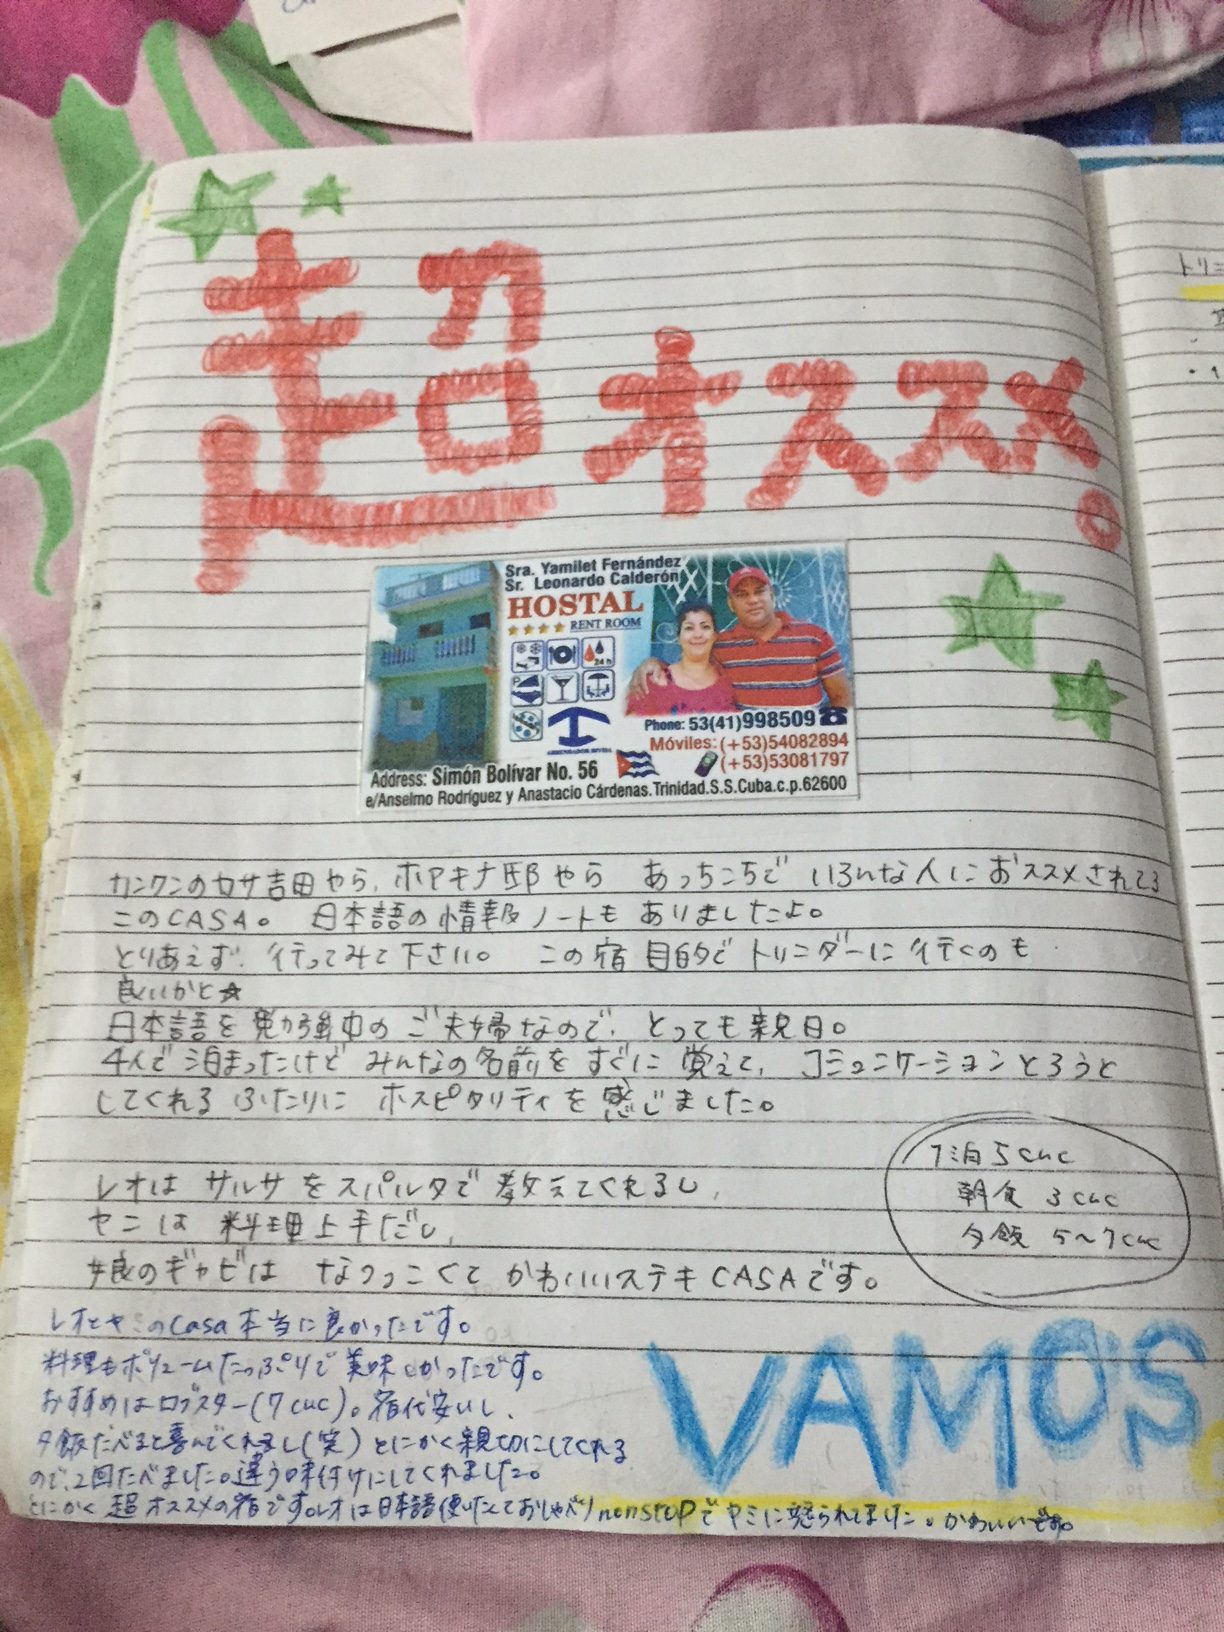 超オススメ。
Sra. Yamilet Fernández
Sr. Leonardo Calderón
HOSTAL
RENT ROOM
24 h
P
ARRENDADOR DIVISA
Phone: 53(41)998509
Móviles: (+53)54082894
(+53)53081797
Address: Simón Bolívar No. 56
e/Anselmo Rodríguez y Anastacio Cárdenas.Trinidad.S.S.Cuba.c.p.62600
カンクンのカサ吉田やら、ホアキナ邸やら あっちこちで いろんな人におススメされてる
このCASA。 日本語の情報ノートもありましたよ。
とりあえず、行ってみて下さい。 この宿目的でトリニダーに行くのも
良いかと☆
日本語を勉強中のご夫婦なので、とっても親日。
4人で泊まったけどみんなの名前をすぐに覚えて、コミュニケーションとろうと
してくれるふたりに ホスピタリティを感じました。
1泊 5cuc
朝食 3cuc
夕飯 5〜7cuc
レオは サルサをスパルタで教えてくれるし、
ヤミは 料理上手だし、
娘のギャビは なつっこくて かわいいステキCASAです。
レオとヤミのcasa本当に良かったです。
料理もボリュームたっぷりで美味しかったです。
おすすめはロブスター(7cuc)。宿代安いし、
夕飯たべると喜んでくれるし(笑) とにかく親切にしてくれる
ので、2回たべました。違う味付けにしてくれました。
とにかく超オススメの宿です。レオは日本語使いたくておしゃべりnonstopでヤミに怒られてました。かわいいです。
VAMOS
トリニ